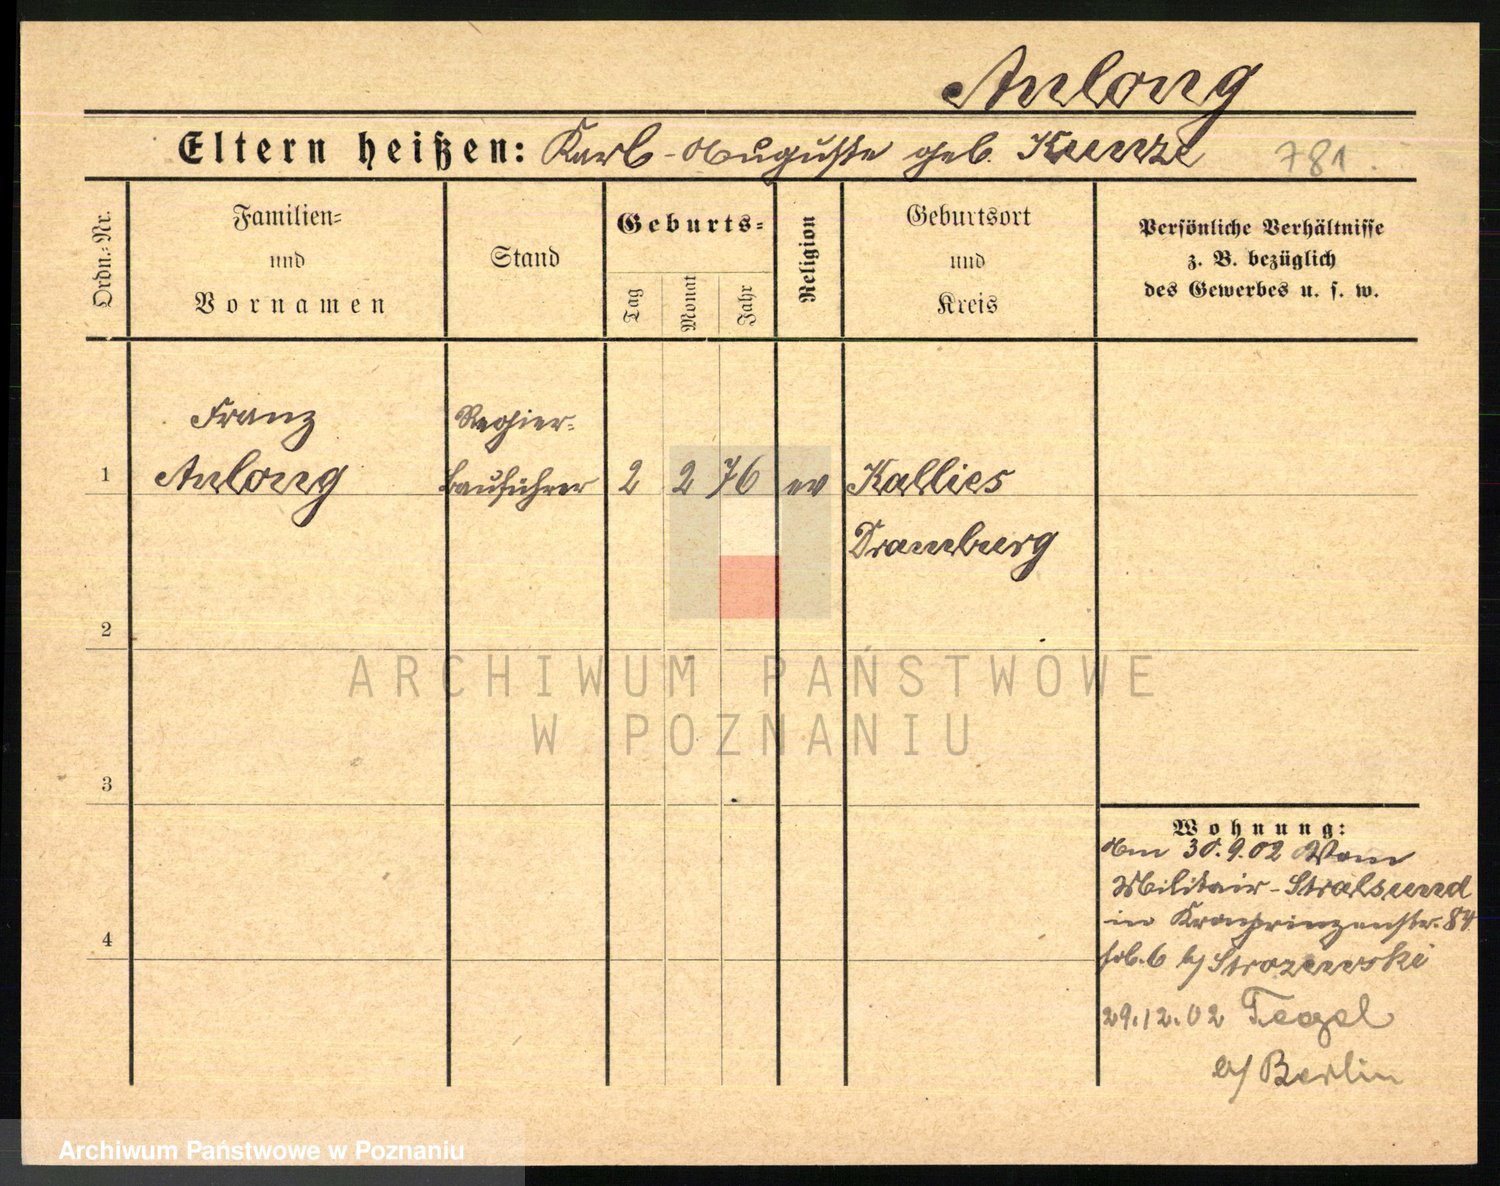 Anlong
Eltern heißen: Karl - Auguste geb. Kunze 781
Ordn.-Nr.
Familien-
und
Vornamen
Stand
Geburts-
Tag Monat Jahr
Religion
Geburtsort
und
Kreis
Persönliche Verhältnisse
z. B. bezüglich
des Gewerbes u. s. w.
Franz Regier-
1 Anlong bauführer 2 2 76 ev Kallies
Dramburg
2
ARCHIWUM PAŃSTWOWE
W POZNANIU
3
Wohnung:
Am 30.9.02 Vom
Militair-Stralsund
in Kronprinzenstr. 84
4
b/ Strozewski
29.12.02 Tegel
b/ Berlin
Archiwum Państwowe w Poznaniu